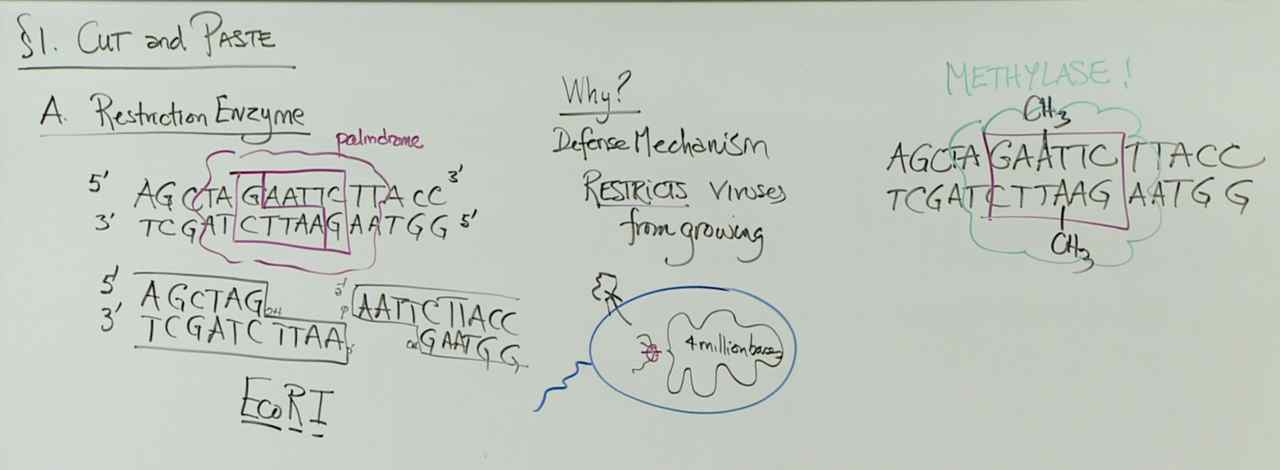 §1. CUT and PASTE
A. Restriction Enzyme
palindrome
5' AGCTAGAATTCTTACC 3'
3' TCGATCTTAAGAATGG 5'
5' AGCTAG OH 5' P AATTCTTACC
3' TCGATCTTAA P OH GAATGG
EcoRI
Why?
Defense Mechanism
RESTRICTS viruses
from growing
4 million bases
METHYLASE!
CH3
AGCTAGAATTCTTACC
TCGATCTTAAGAATGG
CH3